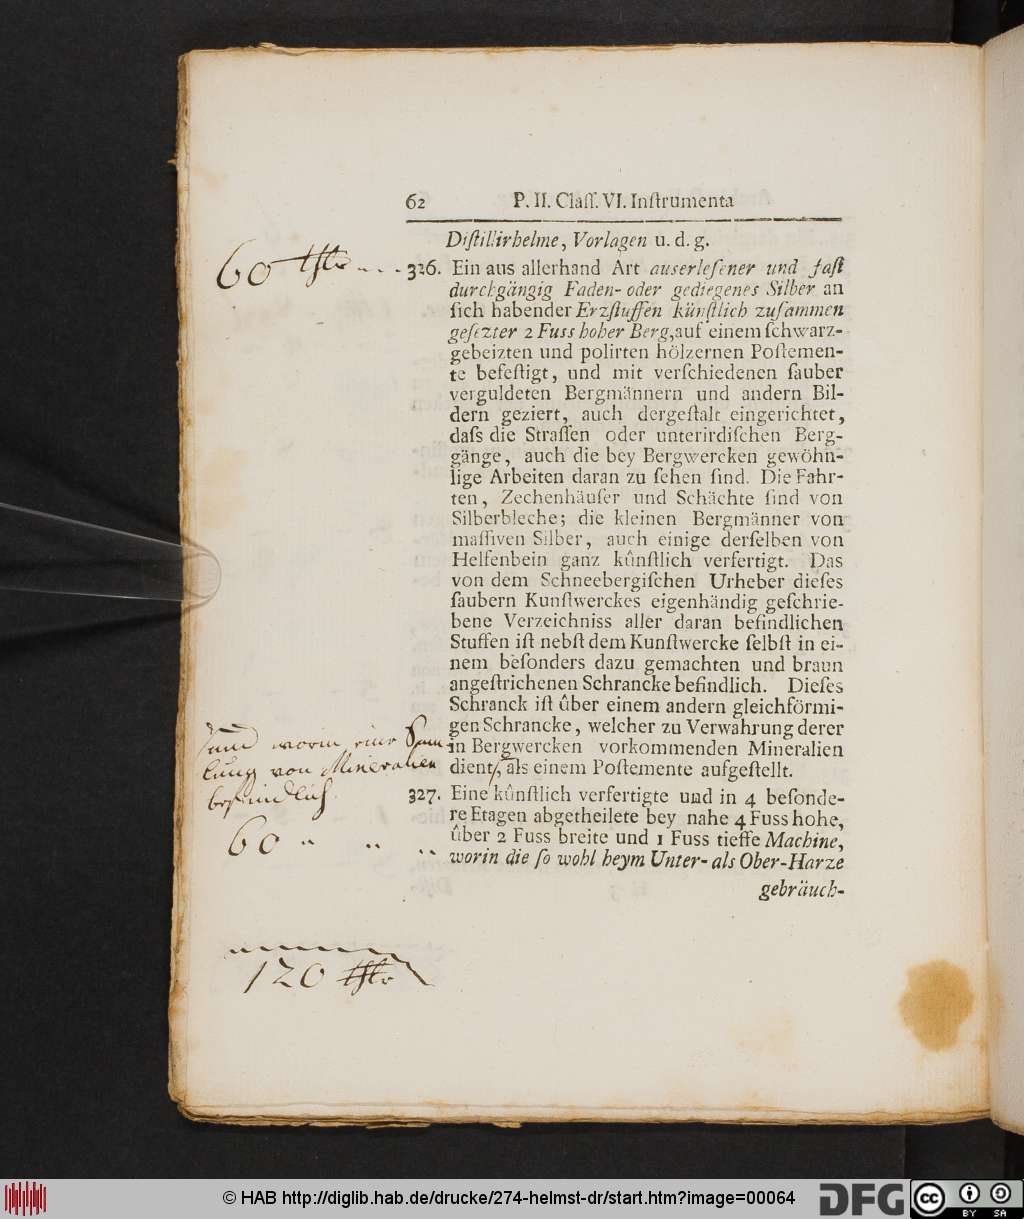 62 P. II. Claſſ. VI. Inſtrumenta
Diſtillirhelme, Vorlagen u. d. g.
60 thlr
326. Ein aus allerhand Art auserleſener und faſt
durchgängig Faden- oder gediegenes Silber an
ſich habender Erzſtuffen künſtlich zuſammen
geſezter 2 Fuss hoher Berg, auf einem ſchwarz-
gebeizten und polirten hölzernen Poſtemen-
te befeſtigt, und mit verſchiedenen ſauber
verguldeten Bergmännern und andern Bil-
dern geziert, auch dergeſtalt eingerichtet,
daſs die Straſſen oder unterirdiſchen Berg-
gänge, auch die bey Bergwercken gewöhn-
lige Arbeiten daran zu ſehen ſind. Die Fahr-
ten, Zechenhäuſer und Schächte ſind von
Silberbleche; die kleinen Bergmänner von
maſſiven Silber, auch einige derſelben von
Helfenbein ganz kûnſtlich verfertigt. Das
von dem Schneebergiſchen Urheber dieſes
ſaubern Kunſtwerckes eigenhändig geſchrie-
bene Verzeichniss aller daran befindlichen
Stuffen iſt nebſt dem Kunſtwercke ſelbſt in ei-
nem beſonders dazu gemachten und braun
angeſtrichenen Schrancke befindlich. Dieſes
Schranck iſt ûber einem andern gleichförmi-
gen Schrancke, welcher zu Verwahrung derer
in Bergwercken vorkommenden Mineralien
dient, als einem Poſtemente aufgeſtellt.
und worin eine Sam-
lung von Mineralien
befindlich.
327. Eine kûnſtlich verfertigte und in 4 beſonde-
re Etagen abgetheilete bey nahe 4 Fuss hohe,
ûber 2 Fuss breite und 1 Fuss tieffe Machine,
worin die ſo wohl beym Unter- als Ober-Harze
60
gebräuch-
120 thlr
© HAB http://diglib.hab.de/drucke/274-helmst-dr/start.htm?image=00064
DFG
cc BY SA